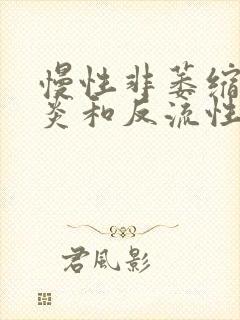 慢性非萎缩
炎和反流性
君风影